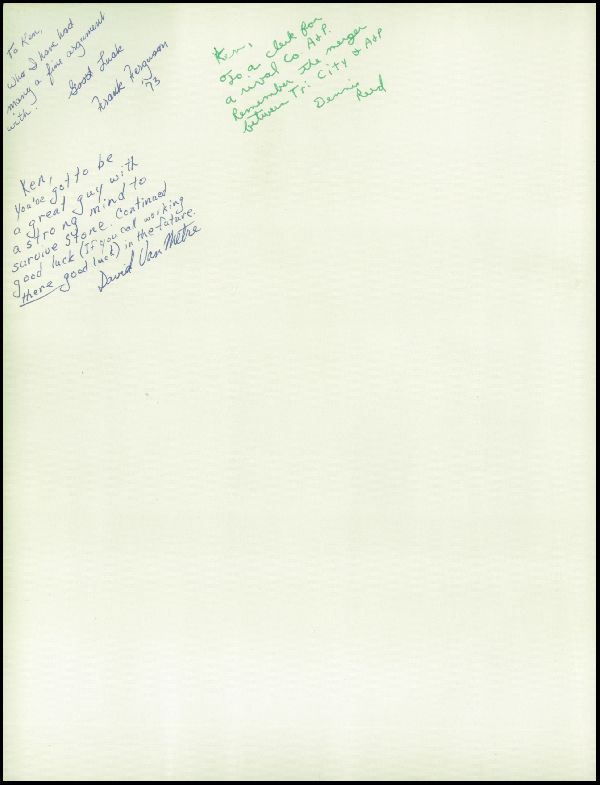 To Ken,
Who I have had
many a fine argument
with.
Good Luck
Frank Ferguson
'73
Ken,
To a clerk for
a rival Co A+P.
Remember the merger
between Tri City & A+P
Dennis
Reed
Ken,
You've got to be
a great guy with
a strong mind to
survive Stone. Continued
good luck (if you call working
there good luck) in the future.
David Van Metre